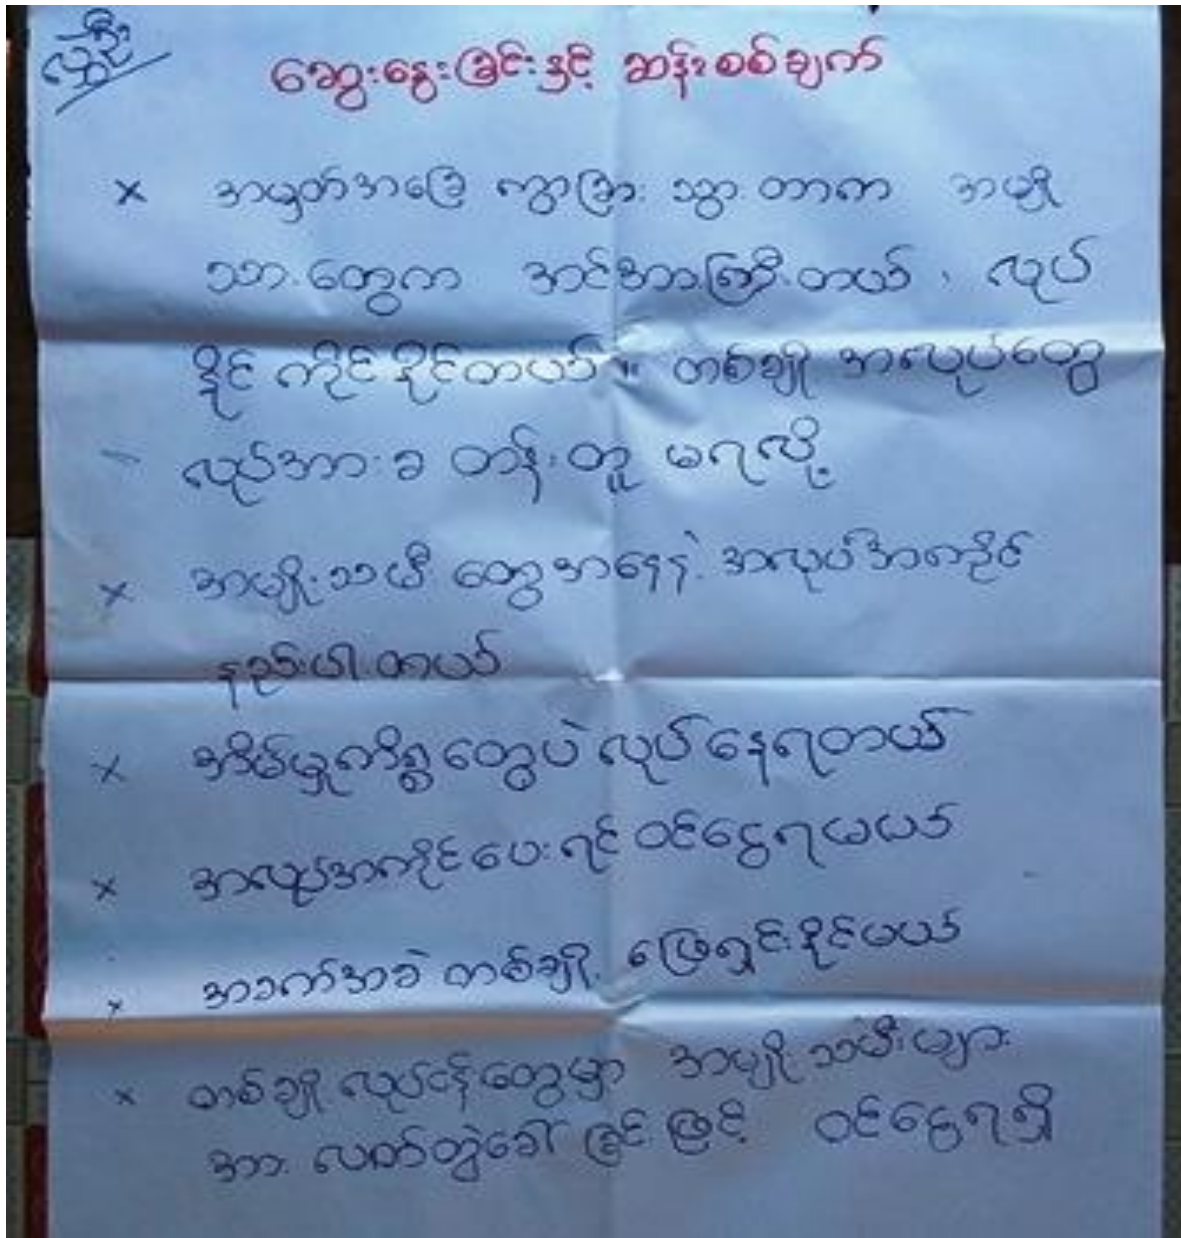 ဆွေးနွေးခြင်းနှင့် ဆန်းစစ်ချက်
x အမှတ်အခြေ ကွာခြား သွားတာက အမျို
သားတွေက အင်အားကြီးတယ်၊ လုပ်
နိုင် ကိုင်နိုင်တယ်။ တစ်ချို့ အလုပ်တွေ
- လုပ်အားခ တန်းတူ မရလို့
x အမျိုးသမီးတွေအနေနဲ့ အလုပ်အကိုင်
နည်းပါးတယ်
x အိမ်မှုကိစ္စတွေပဲ လုပ်နေရတယ်
x အလုပ်အကိုင်ပေးရင် ဝင်ငွေရမယ်
x အခက်အခဲ တစ်ချို့ ဖြေရှင်းနိုင်မယ်
x တစ်ချို့ လုပ်ငန်းတွေမှာ အမျိုးသမီးများ
အား လက်တွဲခေါ်ခြင်းဖြင့် ဝင်ငွေရရှိ